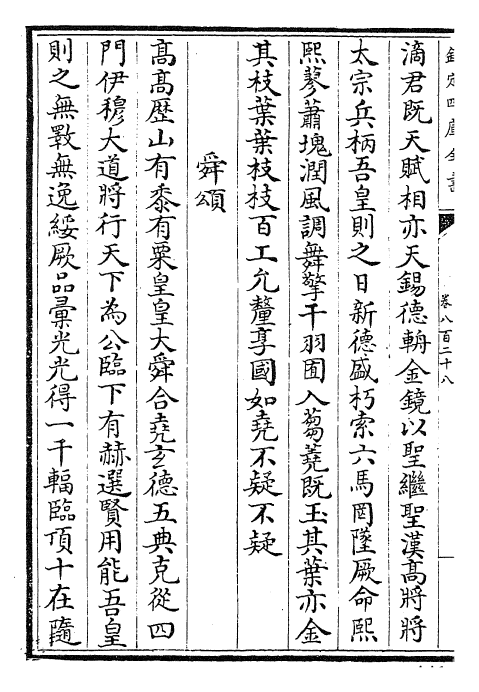 欽定四庫全書
卷八百二十八
滴君既天賦相亦天錫德輶金鏡以聖繼聖漢高將將
太宗兵柄吾皇則之日新德盛朽索六馬罔墜厥命熙
熙蓼蕭塊潤風調舞擎干羽囿入蒭蕘既玉其葉亦金
其枝葉葉枝枝百工允釐享國如堯不疑不疑
舜頌
高高歷山有黍有粟皇皇大舜合堯玄德五典克從四
門伊穆大道將行天下為公臨下有赫選賢用能吾皇
則之無斁無逸綏厥品彙光光得一千輻臨頂十在隨